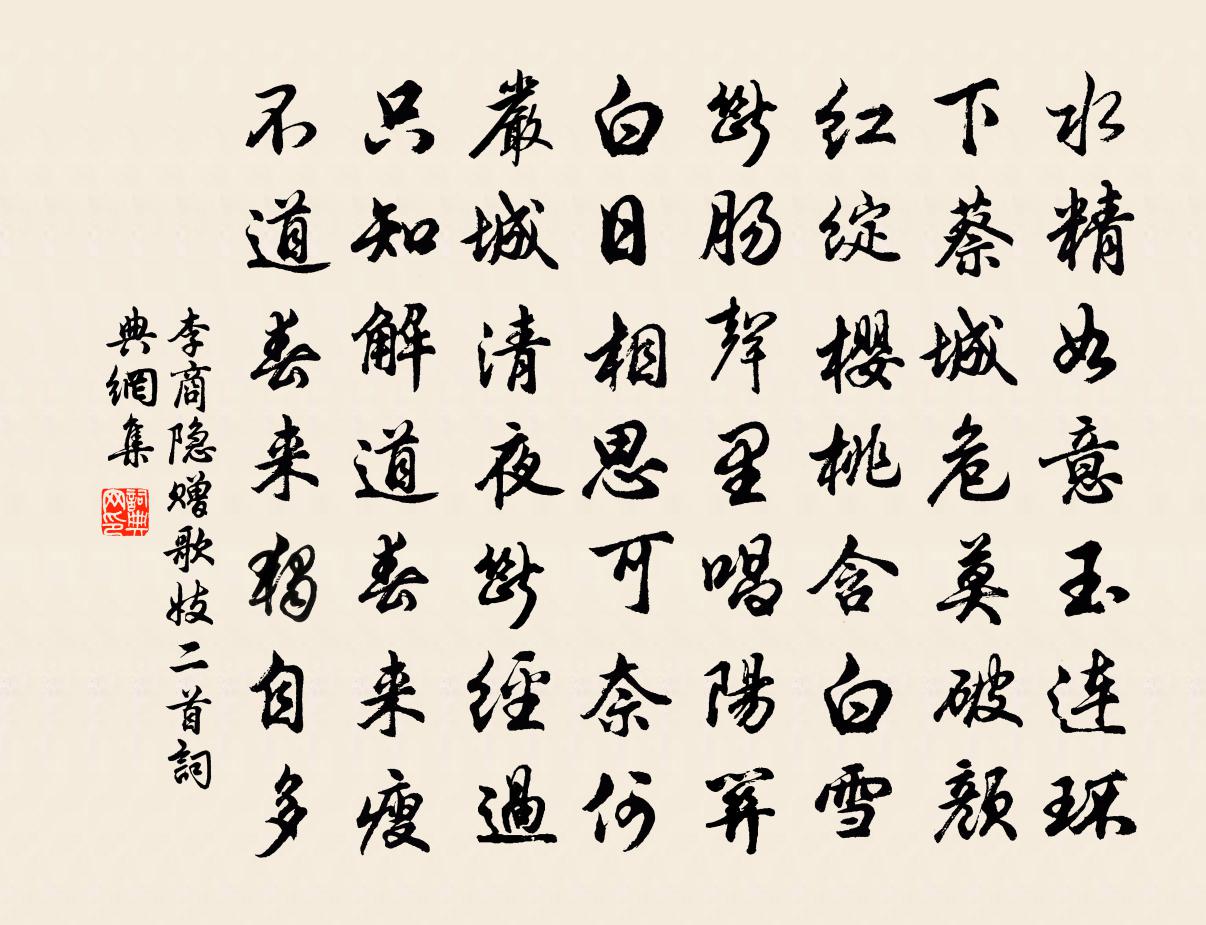 水精如意玉连环
下蔡城危莫破颜
红绽櫻桃含白雪
断肠聲里唱陽關
白日相思可奈何
嚴城清夜断經過
只知解道春来瘦
不道春来獨自多
李商隐赠歌妓二首詞
典網集
詞典网印